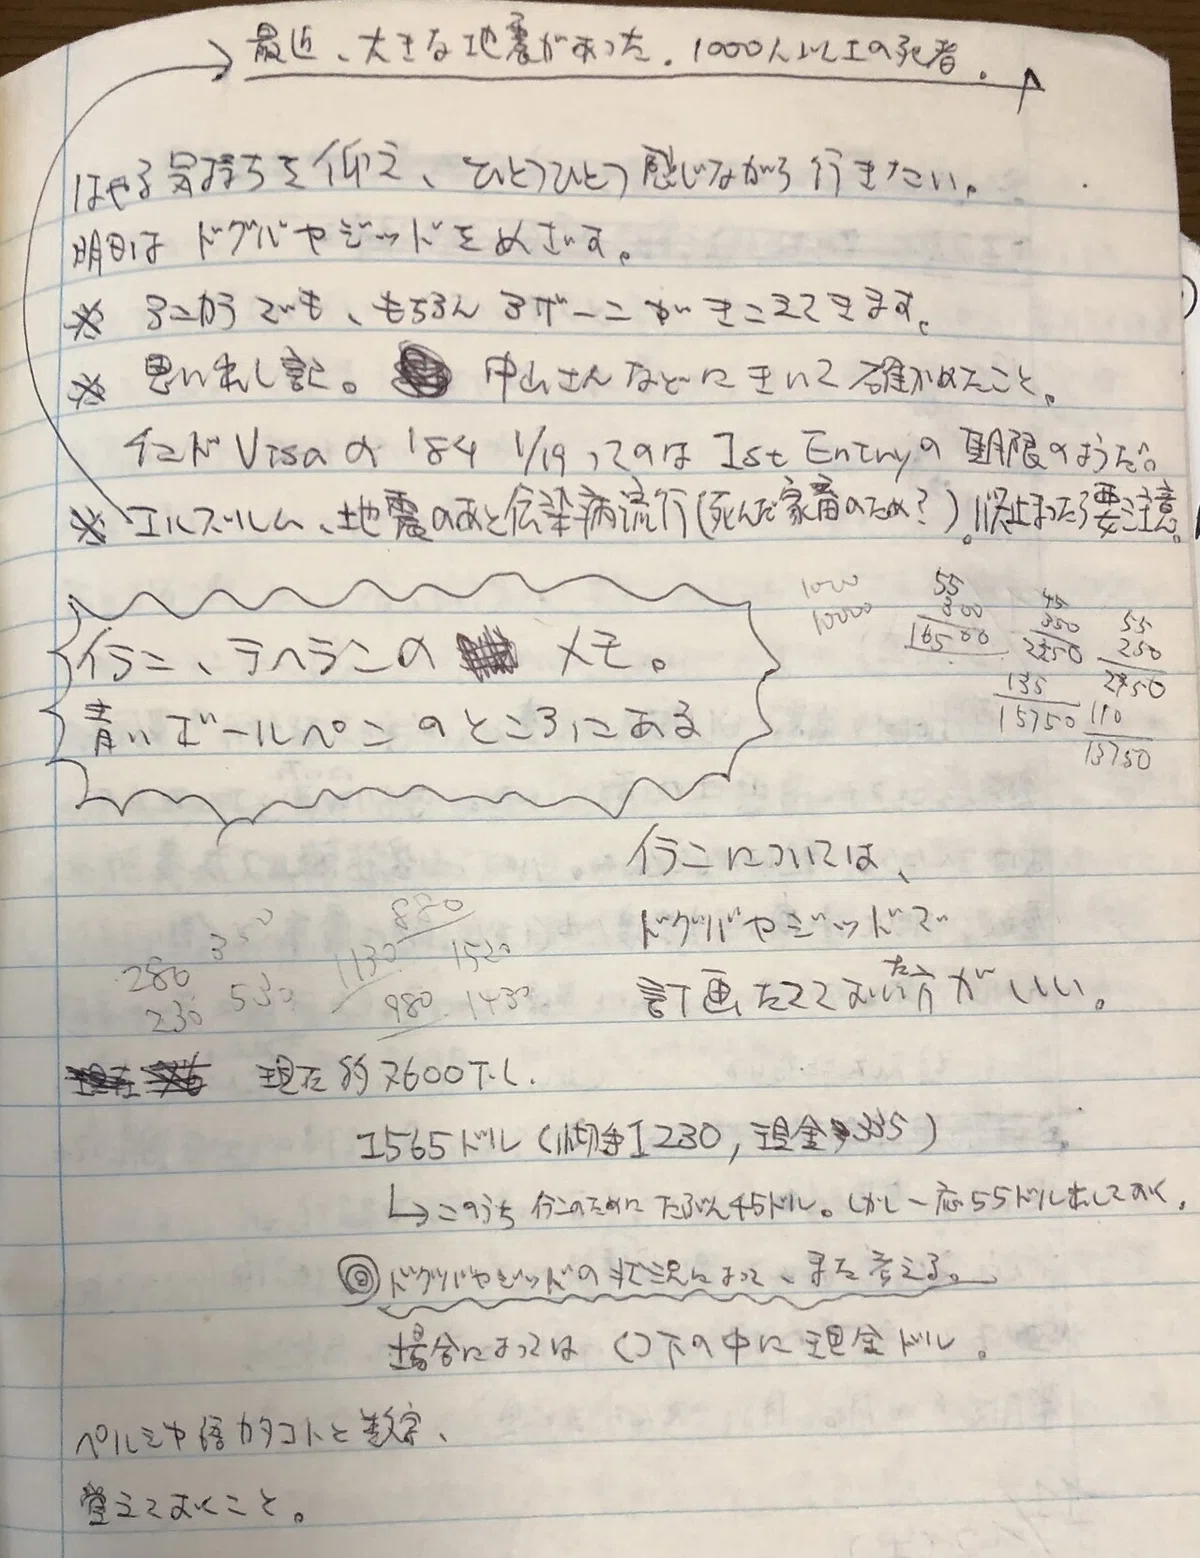 最近、大きな地震があった。1000人以上の死者。
はやる気持ちを仰え、ひとつひとつ感じながら行きたい。
明日はドグバヤジッドをめざす。
※ アンカラでも、もちろんアザーンがきこえてきます。
※ 思い出し記。 中山さんなどにきいて確かめたこと。
インドVisaの '84 1/19ってのは 1st Entryの期限のようだ。
※ エルズルム、地震のあと伝染病流行(死んだ家畜のため?)。泊まったら要注意。
イラン、テヘランの メモ。
青いボールペンのところにある
1000
10000
55
300
16500
45
350
2250
135
15750
55
250
2750
110
13750
イランについては、
ドグバヤジッドで
計画たてておいた方がいい。
280
230
350
530
1130
880
980
1520
1430
現在 約7600T.L.
I565ドル (I230, 現金335)
↳このうち イランのために たぶん45ドル。しかし一応55ドル出しておく。
◎ドグバヤジッドの状況によって、また考える。
場合によっては くつ下の中に現金ドル。
ペルシャ語カタコトと数字、
覚えておくこと。